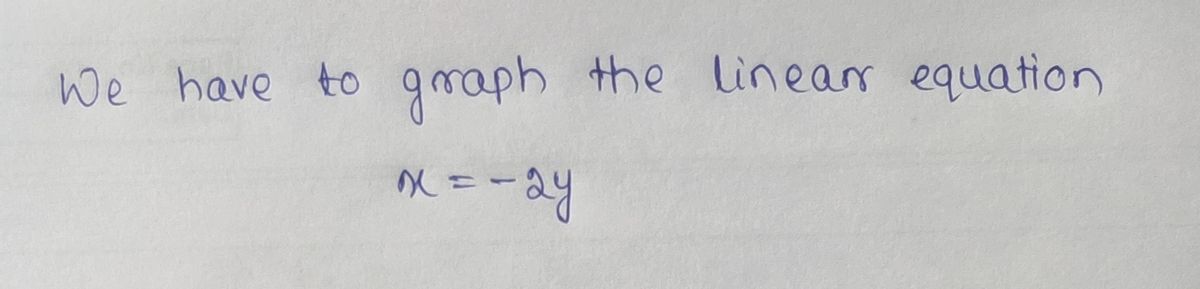 We have to graph the linear equation
x = -2y